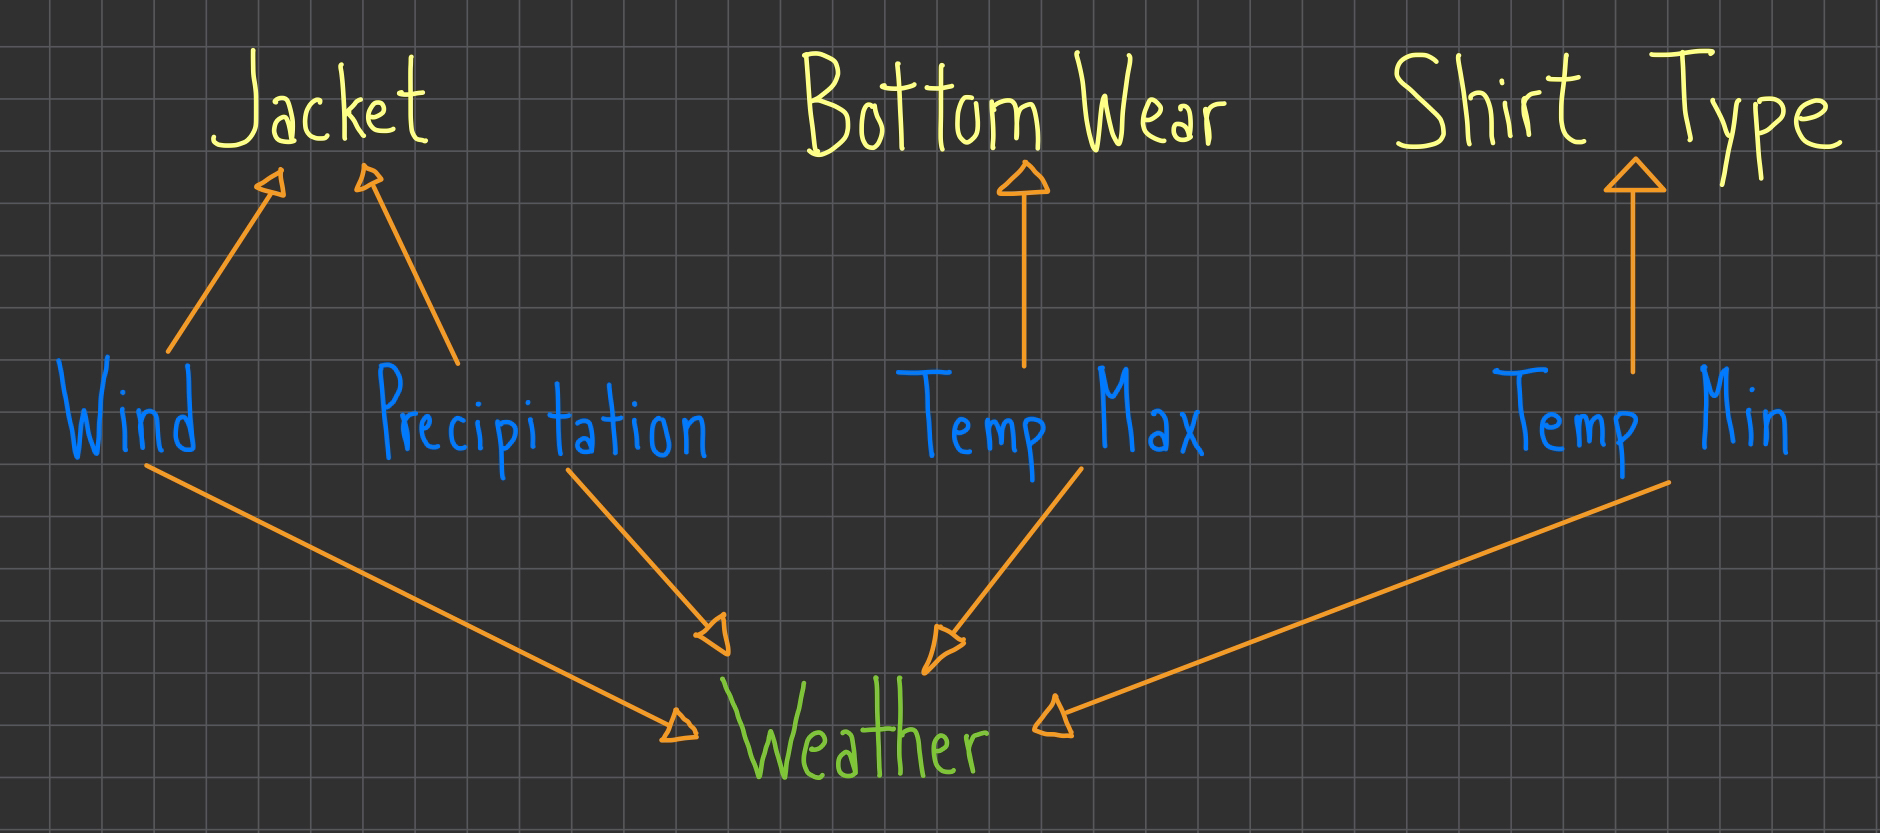 Jacket Bottom Wear Shirt Type
Wind Precipitation Temp Max Temp Min
Weather